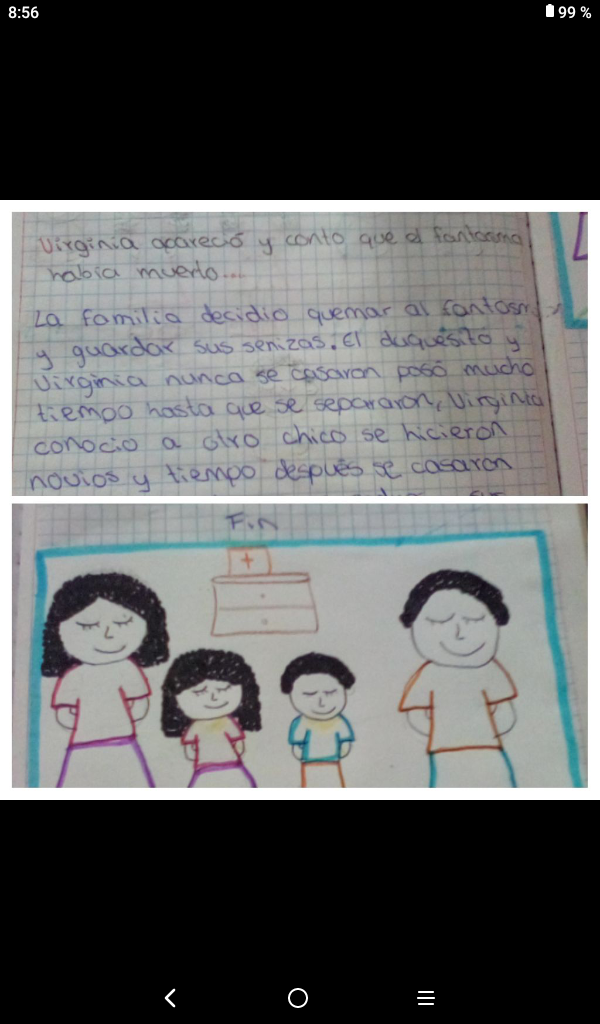 8:56
99 %
Virginia apareció y conto que el fantasma
había muerto...
La familia decidio quemar al fantasm
y guardar sus senizas. El duquesito y
Virginia nunca se casaron pasó mucho
tiempo hasta que se separaron, Virginia
conocio a otro chico se hicieron
novios y tiempo después se casaron
Fin